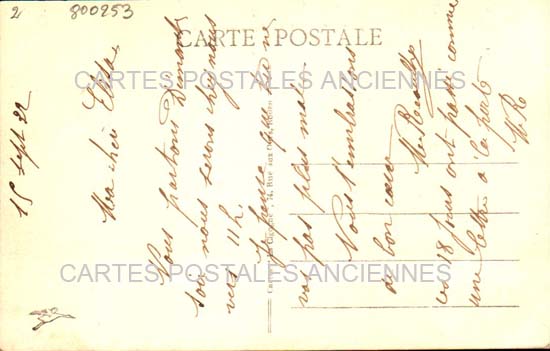 2
800253
CARTE POSTALE
CARTES POSTALES ANCIENNES
CARTES POSTALES ANCIENNES
15 Sept 22
Ma chère Etta,
Nous partons Dimanche
soir nous serons chez nous
vers 11 h.
Je pense que tu ne
vas pas plus mal.
Nous t'embrassons
de bon cœur
les 18 sous ont passé comme
une lettre à la poste
M R